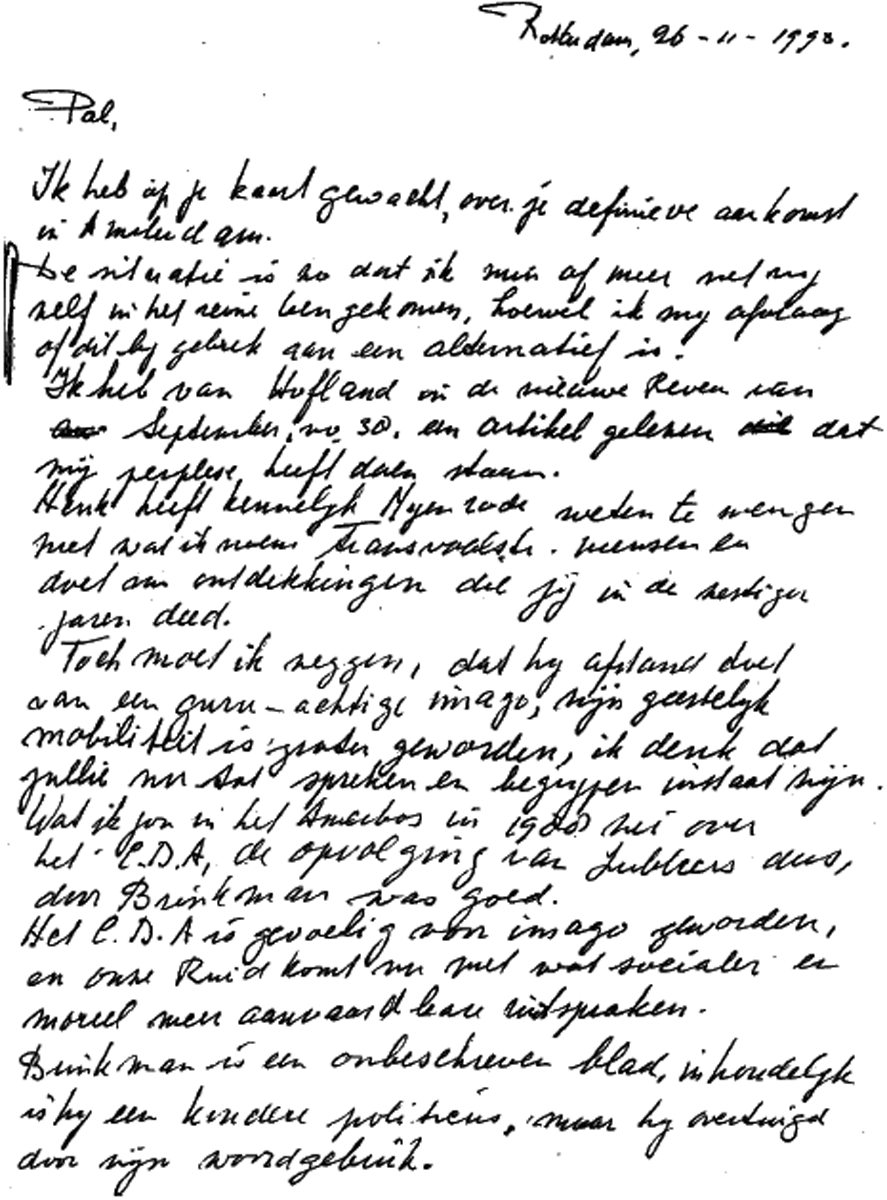 Rotterdam, 26-11-1993.
Pal,
Ik heb op je kaart gewacht, over je definieve aankomst
in Amsterdam.
De situatie is zo dat ik min of meer met my
zelf in het reine ben gekomen, hoewel ik my afvraag
of dit by gebrek aan een alternatief is.
Ik heb van Hofland in de nieuwe Reven van
September, no 30. een artikel gelezen dat
mij perplexe heeft doen staan.
Henk heeft kennelijk Nyenrode weten te mengen
met wat ik noem mensen en
doet nu ontdekkingen die jij in de zestiger
jaren deed.
Toch moet ik zeggen, dat hy afstand doet
van een guru-achtige imago, zijn geestelijk
mobiliteit is groter geworden, ik denk dat
jullie nu tot spreken en begrijpen instaat zijn.
Wat ik jou in het Amerbos in 1988 zei over
het C.D.A, de opvolging van Lubbers dus,
door Brinkman was goed.
Het C.D.A is gevoelig voor imago geworden,
en onze Ruud komt nu met wat socialer en
moreel meer aanvaardbare uitspraken.
Brinkman is een onbeschreven blad, inhoudelijk
is hy een politicus, maar hy overtuigd
door zijn woordgebruik.